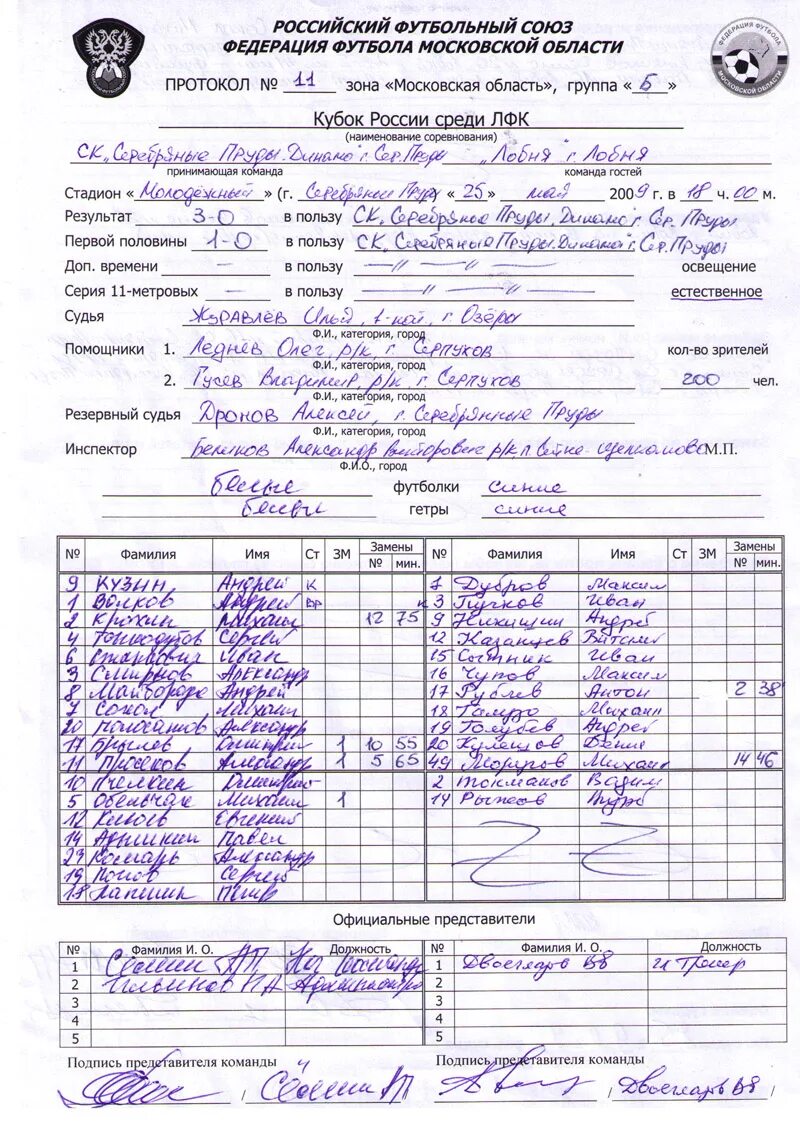 РОССИЙСКИЙ ФУТБОЛЬНЫЙ СОЮЗ
ФЕДЕРАЦИЯ ФУТБОЛА МОСКОВСКОЙ ОБЛАСТИ
ФЕДЕРАЦИЯ ФУТБОЛА МОСКОВСКОЙ ОБЛАСТИ
ПРОТОКОЛ № 11 зона «Московская область», группа « Б »
Кубок России среди ЛФК
(наименование соревнования)
СК „Серебряные Пруды-Динамо" г. Сер. Пруды „Лобня" г. Лобня
принимающая команда команда гостей
Стадион « Молодёжный » (г. Серебряные Пруды « 25 » мая 2009 г. в 18 ч. 00 м.
Результат 3-0 в пользу СК „Серебряные Пруды-Динамо" г. Сер. Пруды
Первой половины 1-0 в пользу СК „Серебряные Пруды-Динамо" г. Сер. Пруды
Доп. времени — в пользу —//—//— освещение
Серия 11-метровых — в пользу —//—//— естественное
Судья Журавлёв Илья, 1-кой, г. Озёры
Ф.И., категория, город
Помощники 1. Леднёв Олег, р/к, г. Серпухов кол-во зрителей
Ф.И., категория, город
2. Гусев Владимир, р/к, г. Серпухов 200 чел.
Ф.И., категория, город
Резервный судья Дронов Алексей, г. Серебрянные Пруды
Ф.И., категория, город
Инспектор Александр Викторович р/к, М.П.
Ф.И.О., город
белые футболки синие
белые гетры синие
№ Фамилия Имя Ст ЗМ Замены № мин. № Фамилия Имя Ст ЗМ Замены № мин.
9 Кузин Андрей К 1 Дубров Максим
1 Волков Андрей вр к 3 Гучков Иван
2 Крохин Михаил 12 75 9 Никишин Андрей
4 Сергей 12 Казанцев Виталий
6 Иван 15 Сотник Иван
3 Смирнов Александр 16 Чупов Максим
8 Майборода Андрей 17 Рублев Антон 2 38
7 Сокол Михаил 18 Михаил
20 Александр 19 Голубев Андрей
17 Брылев Дмитрий 1 10 55 20 Кулешов Денис
11 Просеков Александр 1 5 65 49 Моругов Михаил 14 46
10 Пчелкин Дмитрий 2 Токмаков Вадим
5 Михаил 1 14 Рыжков Андрей
12 Евгений
14 Павел
23 Комарь Александр
19 Попов Сергей
Лапшин Петр
Официальные представители
№ Фамилия И. О. Должность № Фамилия И. О. Должность
1 Сёмин АП Нач команды 1 ВВ гл Тренер
2 Ильинов Администратор 2
3 3
4 4
5 5
Подпись представителя команды Подпись представителя команды
/ Сёмин АП / ВВ /